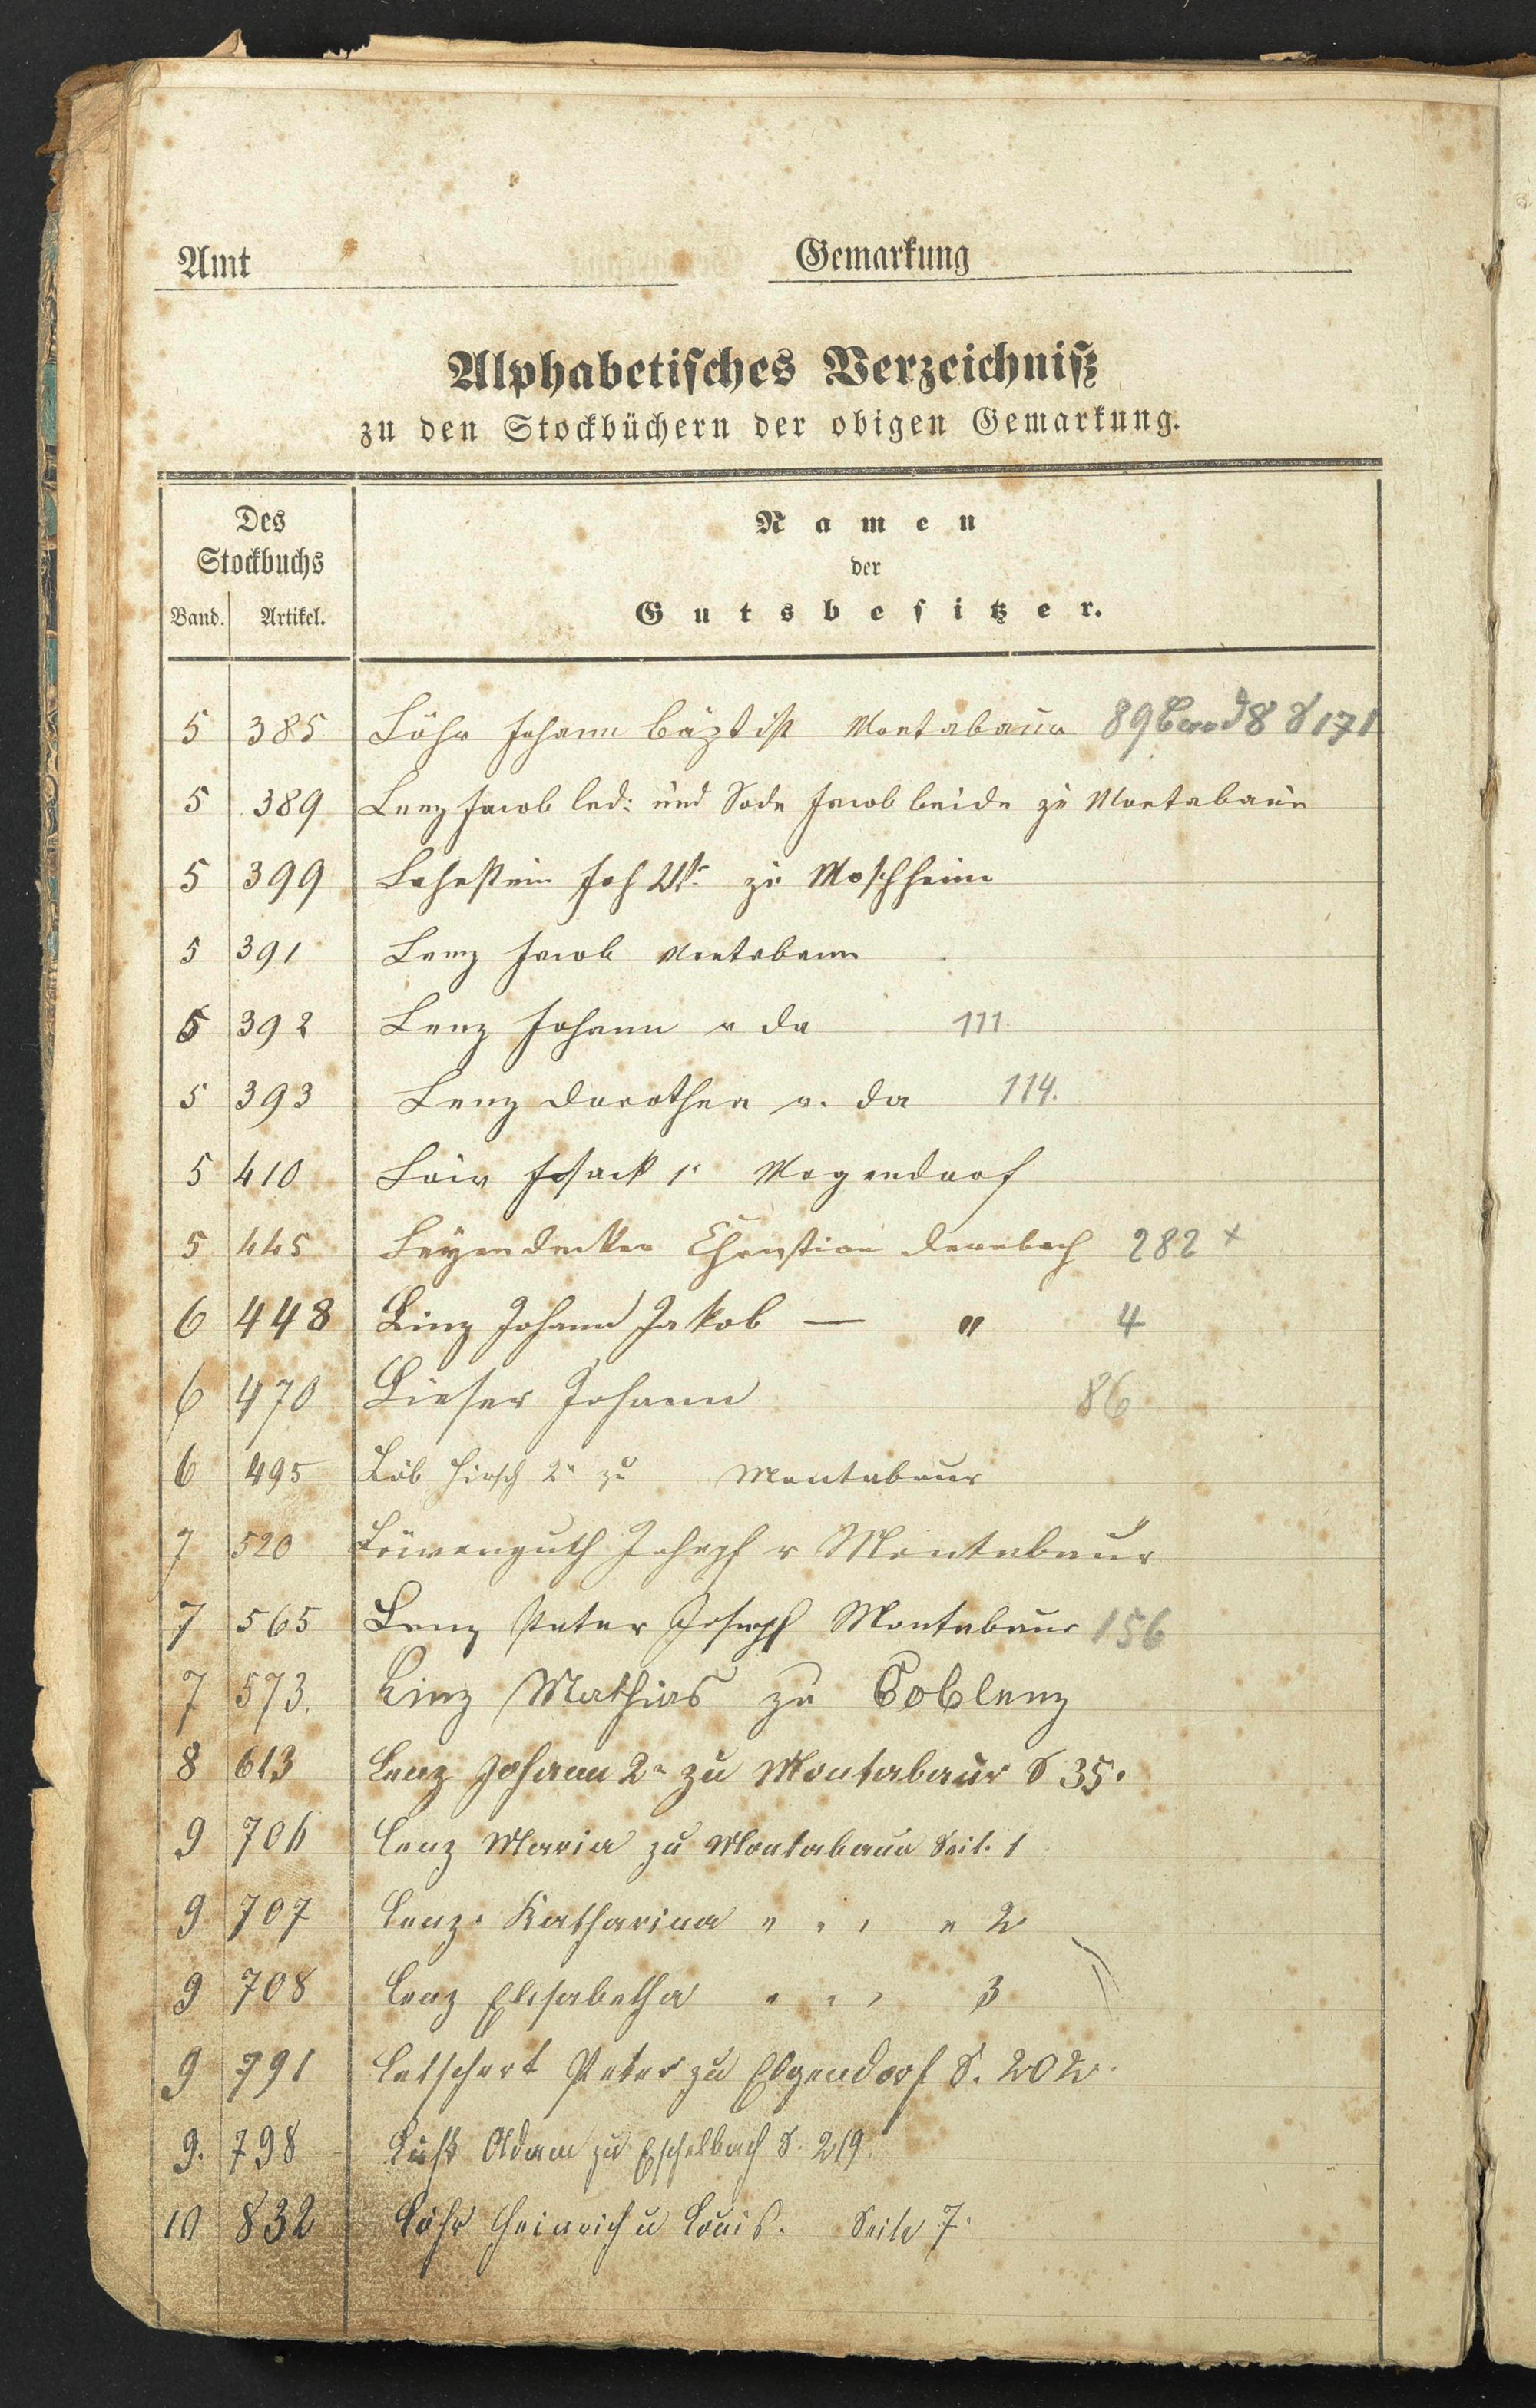 Amt Gemarkung
Alphabetisches Verzeichniß
zu den Stockbüchern der obigen Gemarkung.
Des Stockbuchs
Namen
der
Gutsbesitzer.
Band. Artikel.
5 385 Löhr Johann Baptist Montabaur 89 Band 8 S 171
5 389 Lenz Jacob led: und Jacob beide zu Montabaur
5 399 Lahnstein Joh zu Moschheim
5 391 Lenz Jacob Montabaur
5 392 Lenz Johann v da 111.
5 393 Lenz Dorothea v. da 114.
5 410 Löw Isack 1r Mogendorf
5 445 Leyendecker Christian Dernbach 282 x
6 448 Linz Johann Jakob — " 4
6 470 Lieser Johann 86
6 495 Löb Hirsch 2r zu Montabaur
7 520 Löwenguth Joseph v Montabaur
7 565 Lenz Peter Joseph Montabaur 156
7 573. Linz Mathias zu Coblenz
8 613 Lenz Johann 2r zu Montabaur S 35.
9 706 Lenz Maria zu Montabaur Seit. 1
9 707 Lenz Katharina " " " " 2
9 708 Lenz Elisabetha " " " 3
9 791 Letschert Peter zu Elgendorf S. 202.
9. 798 Adam zu Eschelbach S. 219.
10 832 Löhr Heinrich u Louis. Seite 7.